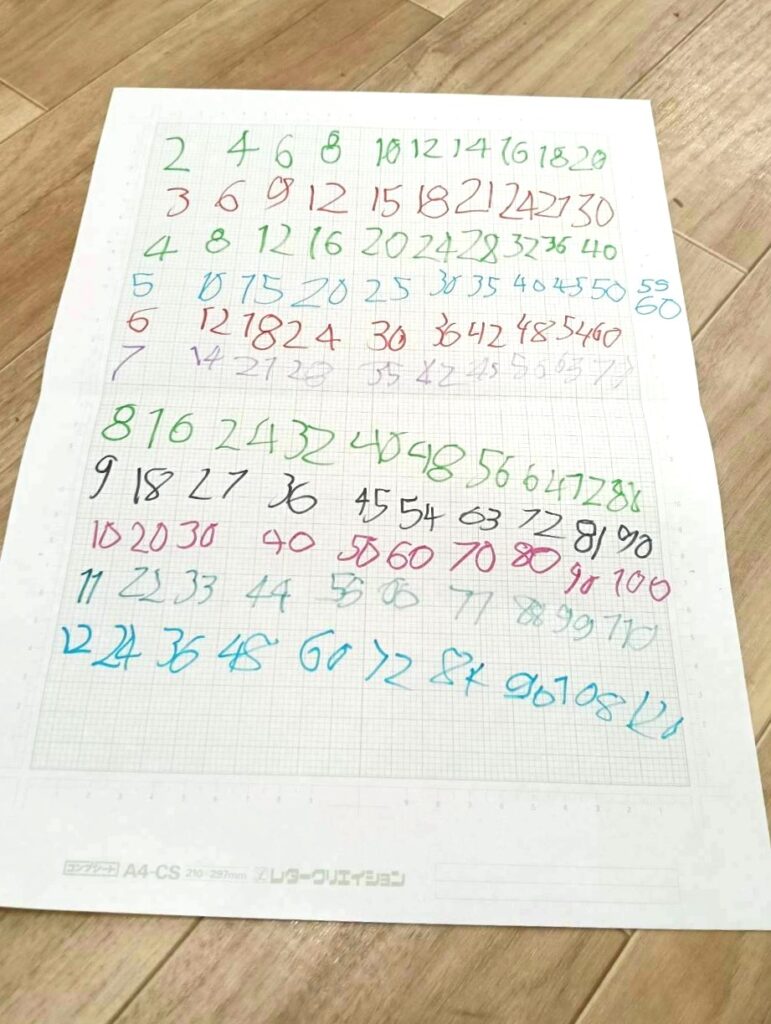 2 4 6 8 10 12 14 16 18 20
3 6 9 12 15 18 21 24 27 30
4 8 12 16 20 24 28 32 36 40
5 10 15 20 25 30 35 40 45 50 55 60
6 12 18 24 30 36 42 48 54 60
7 14 21 28 35 42 63
8 16 24 32 40 48 56 64 72
9 18 27 36 45 54 63 72 81 90
10 20 30 40 50 60 70 80 90 100
11 22 33 44 77 88 99 110
12 24 36 48 60 72 84 96 108 120
コンプシート A4-CS 210×297mm レタークリエイション